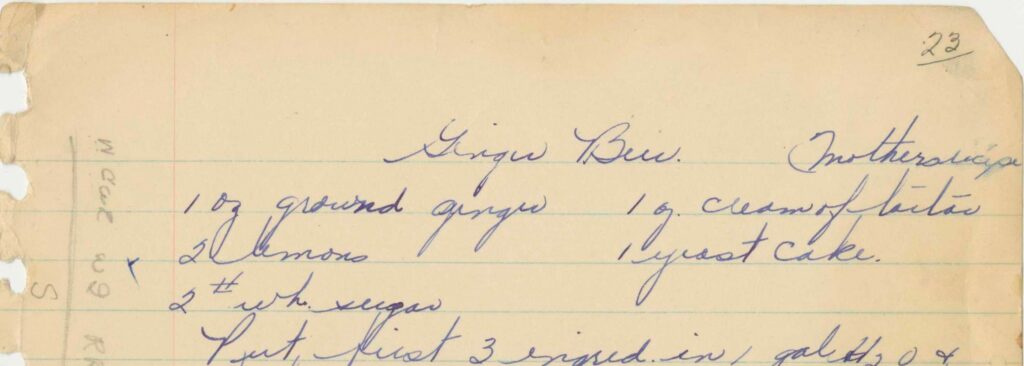 23
Ginger Beer. Mothers recipe
1 oz ground ginger 1 oz. cream of tartar
2 lemons 1 yeast cake.
2 # wh. sugar
Put, first 3 ingred. in 1 gal H2O +